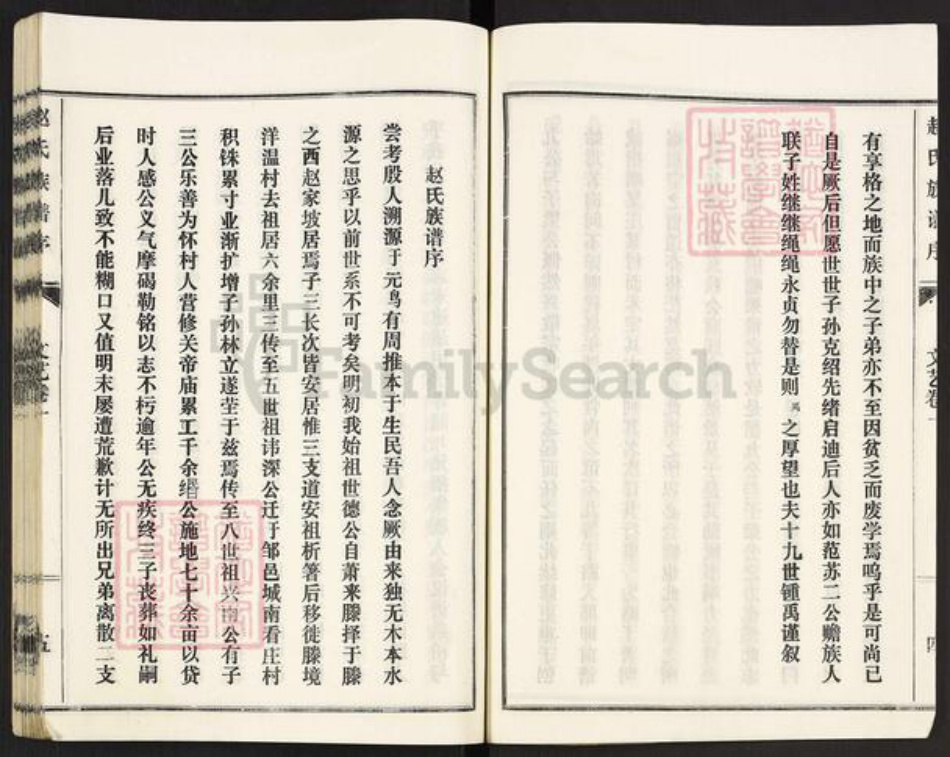 有享格之地而族中之子弟亦不至因贫乏而废学焉呜乎是可尚已
自是厥后但愿世世子孙克绍先绪启迪后人亦如范苏二公赡族人
联子姓继继绳绳永贞勿替是则 之厚望也夫十九世锺禹谨叙
赵氏族谱序
尝考殷人溯源于元鸟有周推本于生民吾人念厥由来独无木本水
源之思乎以前世系不可考矣明初我始祖世德公自萧来滕择于滕
之西赵家坡居焉子三长次皆安居惟三支道安祖析箸后移徙滕境
洋温村去祖居六余里三传至五世祖讳深公迁于邹邑城南看庄村
积铢累寸业渐扩增子孙林立遂茔于兹焉传至八世祖兴南公有子
三公乐善为怀村人营修关帝庙累工千余缗公施地七十余亩以贷
时人感公义气摩碣勒铭以志不朽逾年公无疾终三子丧葬如礼嗣
后业落儿致不能糊口又值明末屡遭荒歉计无所出兄弟离散二支
赵氏族谱序
文艺卷一
四
五
FamilySearch